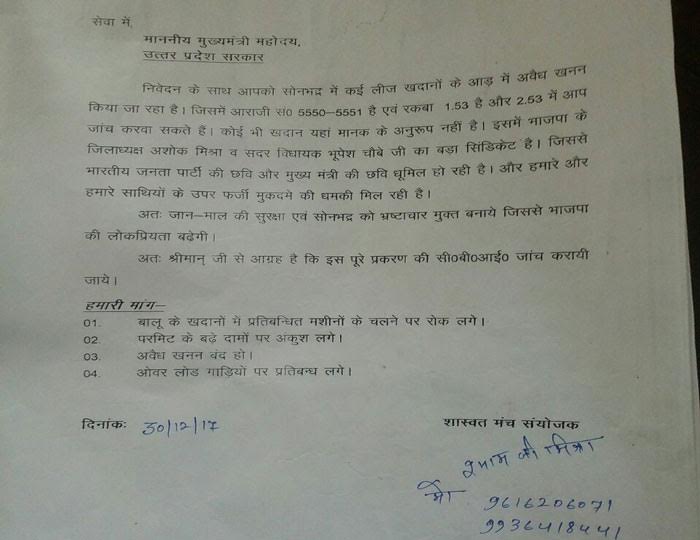 सेवा में,
माननीय मुख्यमंत्री महोदय,
उत्तर प्रदेश सरकार
निवेदन के साथ आपको सोनभद्र में कई लीज खदानों के आड़ में अवैध खनन
किया जा रहा है। जिसमें आराजी सं0 5550–5551 है एवं रकबा 1.53 है और 2.53 में आप
जांच करवा सकते हैं। कोई भी खदान यहां मानक के अनुरूप नहीं है। इसमें भाजपा के
जिलाध्यक्ष अशोक मिश्रा व सदर विधायक भूपेश चौबे जी का बड़ा सिंडिकेट है। जिससे
भारतीय जनता पार्टी की छवि और मुख्य मंत्री की छवि धूमिल हो रही है। और हमारे और
हमारे साथियों के उपर फर्जी मुकदमे की धमकी मिल रही है।
अतः जान–माल की सुरक्षा एवं सोनभद्र को भ्रष्टाचार मुक्त बनाये जिससे भाजपा
की लोकप्रियता बढ़ेगी।
अतः श्रीमान् जी से आग्रह है कि इस पूरे प्रकरण की सी0बी0आई0 जांच करायी
जाये।
हमारी मांग–
01. बालू के खदानों में प्रतिबन्धित मशीनों के चलने पर रोक लगे।
02. परमिट के बढ़े दामों पर अंकुश लगे।
03. अवैध खनन बंद हो।
04. ओवर लोड गाड़ियों पर प्रतिबन्ध लगे।
दिनांकः 30/12/17 शास्वत मंच संयोजक
श्याम जी मिश्रा
मो 9616206071
9936418441